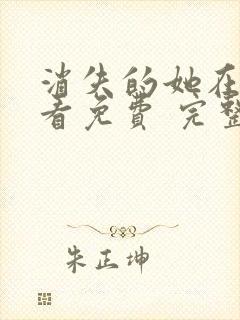 消失的她在
看免费 完整
朱正坤